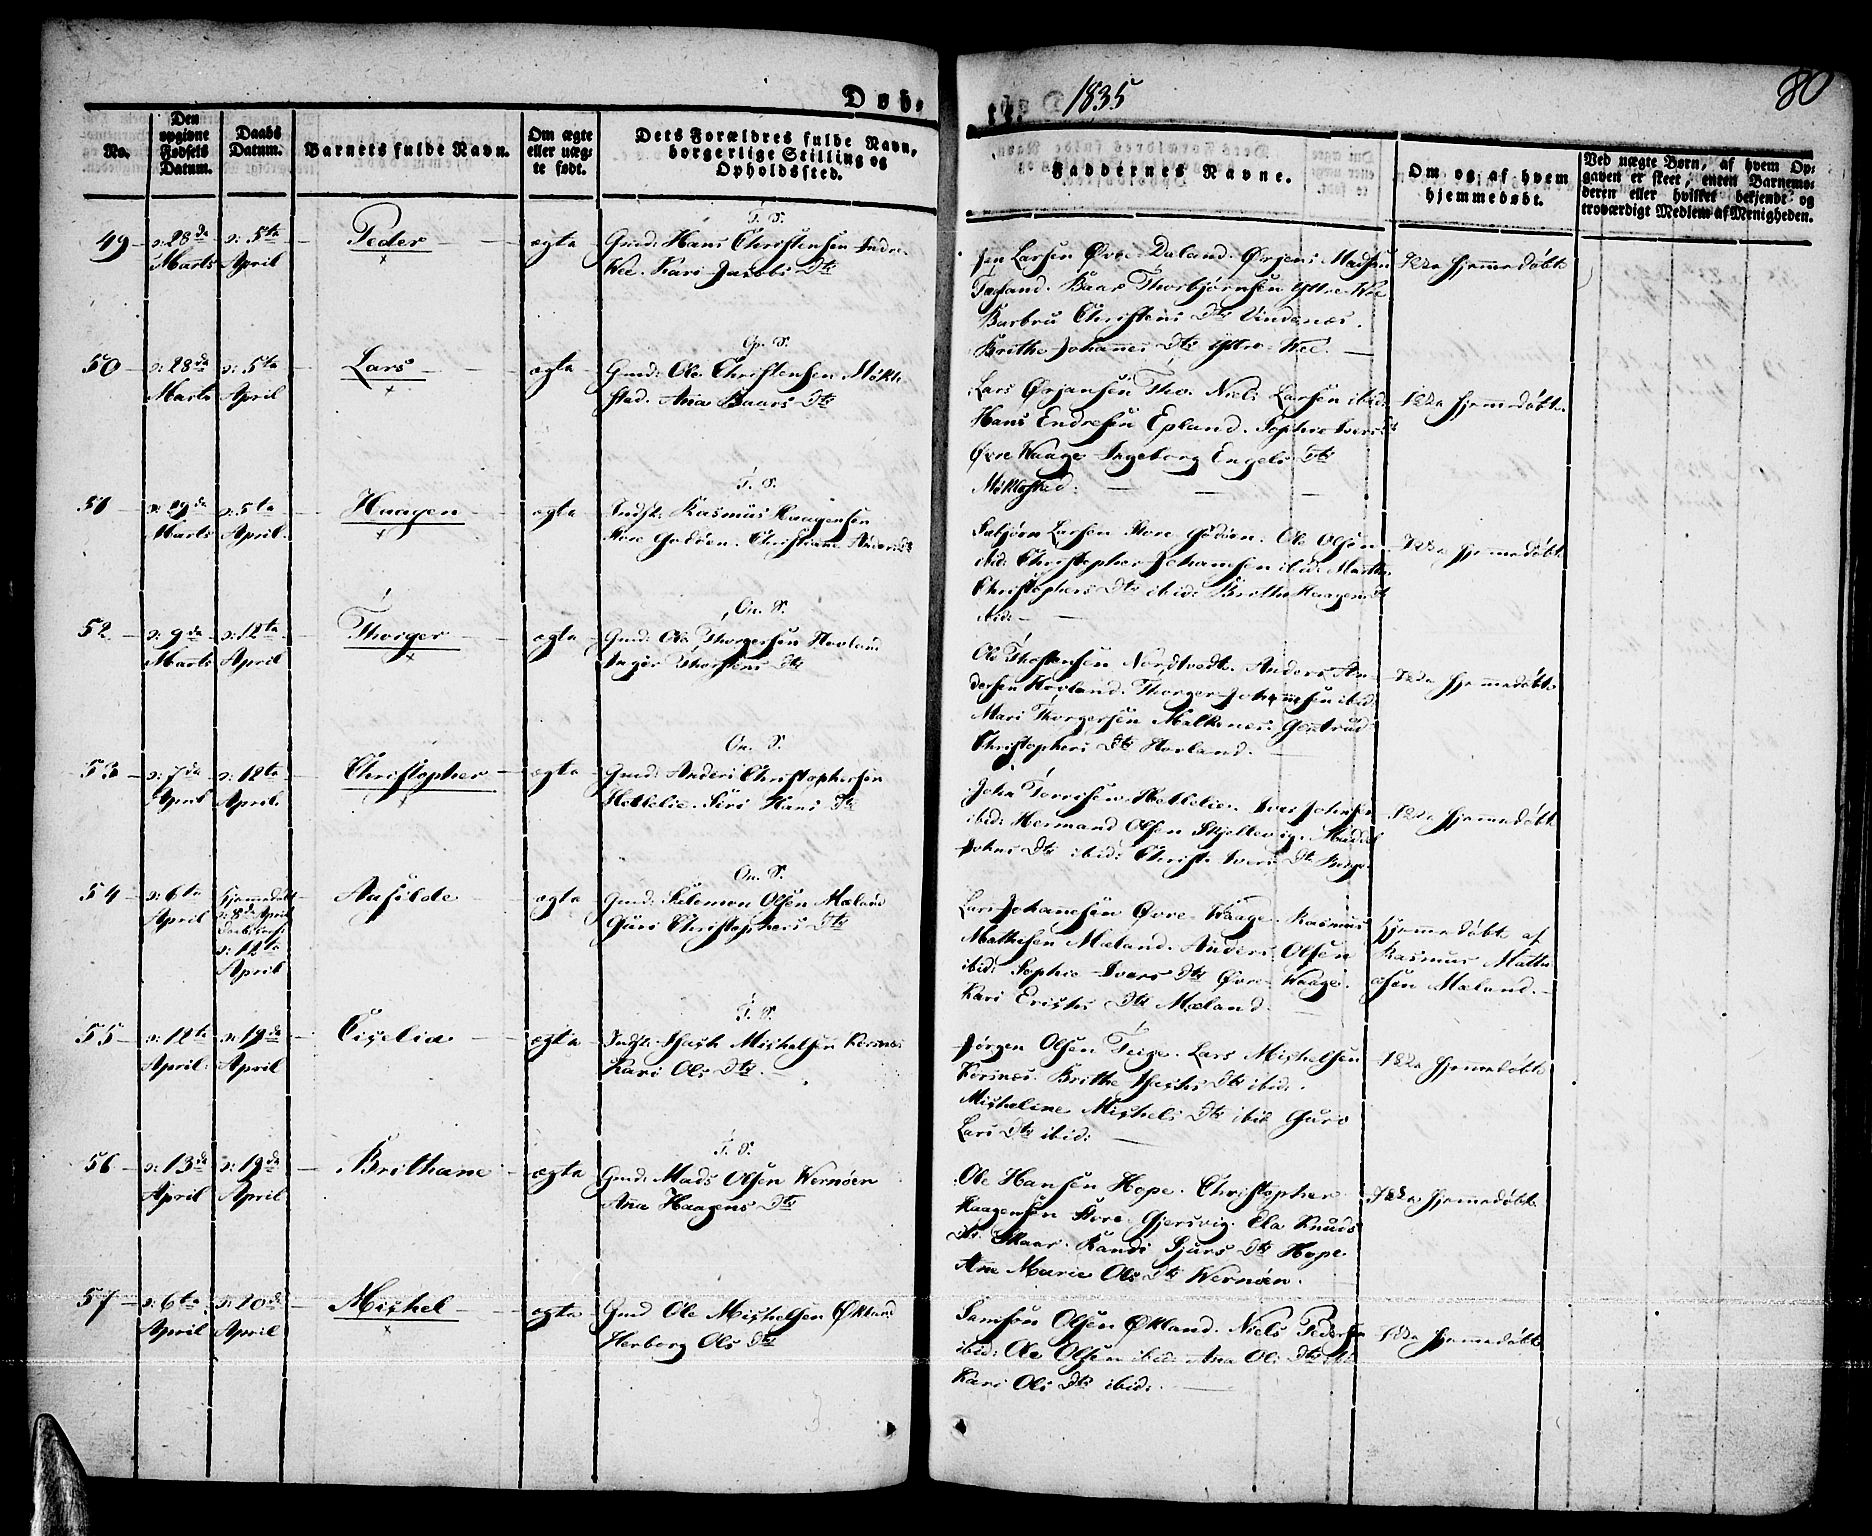 Døb-
1835
80
No.
Den opgivne Fødsels Datum.
Daabs Datum.
Barnets fulde Navn.
Om ægte eller uægte født.
Dets Forældres fulde Navn, borgerlige Stilling og Opholdssted.
Faddernes Navne.
Om og af hvem hjemmedøbt.
Ved uægte Børn, af hvem Opgaven er skeet, enten Barnemoderen eller hvilket bekjendt og troværdigt Medlem af Menigheden.
49
d: 28da Marts
d: 5ta April
Peder
ægta
T. S.
Gmd: Hans Christensen Indre
Wee. Kari Jacobs Dtr
sen Larsen Øvre-Daland. Ørjens Madsen
Tveland. Baar Thorbjørnsen Yttre-Wee
Barbru Christens Dtr Vindenæs.
Brithe Johannes Dtr Yttre-Wee.
Ikke hjemmedøbt
50
d: 28da Marts
d: 5ta April
Lars
ægta
Gmd: Ole Christensen Mökle
stad. Ana Baars Dtr
Lars Ørjansen Tho. Niels Larsen ibid:
Hans Endresen Epland. Sophie Ivers Dtr
Øvre Waage Ingeborg Engels Dtr
Möklestad.
Ikke hjemmedøbt.
51
d: 29da Marts
d: 5ta April.
Haagen
ægta
T. S.
Indst: Rasmus Haagensen
Store Godöen. Christiane Anders Dtr
Larsen Store Godöen. Ole Olsen
ibid: Christopher Johansen ibid: Marthe
Christophers Dtr ibid: Brithe Haagens Dtr
ibid:
Ikke hjemmedøbt
52
d: 9da Marts
d: 12ta April
Thorger
ægta
On. S.
Gmd: Ole Thorgersen Hovland
Inger Thorstens Dtr
Ole Thostensen Nordtvedt. Anders An-
dersen Hovland. Thorger Johannesen ibid:
Mari Thorgersen Malkenes. Gertrud
Christophers Dtr Hovland.
Ikke hjemmedøbt.
53
d: 7da April
d: 12ta April.
Christopher
ægta
On. S.
Gmd: Anders Christophersen
Hetlelie. Siri Hans Dtr
John Torrisen Hetlelie. Iver Johnsen
ibid: Hermand Olsen Skjellevig.
Johns Dtr ibid: Christ. Ivers Dtr Berge
Ikke hjemmedøbt
54
d: 6ta April
hjemmedøbt d: 8da April
d: 12ta April
Aasilde
ægta
On. S.
Gmd: Salomon Olsen Mæland
Guri Christophers Dtr
Lars Johanesen Øvre-Waage. Rasmus
Mathesen Mæland. Anders Olsen
ibid: Sophie Ivers Dtr Øvre-Waage.
Kari Erichs Dtr Mæland
hjemmedøbt af
Rasmus Mathi-
esen Mæland.
55
d: 12ta April.
d: 19da April
Ciselia
ægta
T. S.
Indst: Isach Michelsen Korsnes
Kari Ols Dtr.
Jørgen Olsen Teige. Lars Michelsen
Korsnes. Brithe Isachs Dtr ibid:
Micheline Michels Dtr ibid Guro
Lars Dtr ibid:
Ikke hjemmedøbt
56
d: 13da April
d: 19da April
Brithane
ægta
T. S.
Gmd: Mads Olsen Wernöen
Ana Haagens Dtr
Ole Hansen Hope. Christopher
Haagensen Store Gjersvig. Ela Knuds
Dtr Skaar. Randi Sjurs Dtr Hope
Ane Marie Ols Dtr Wernöen.
Ikke hjemmedøbt.
57
d: 6ta April
d: 20da April
Michel
ægta
Gmd Ole Michelsen Økland
Herborg Ols Dtr
Samson Olsen Økland. Niels Pedersen
ibid: Ole Olsen ibid: Ana Ols Dtr ibid
Kari Ols Dtr ibid:
Ikke hjemmedøbt